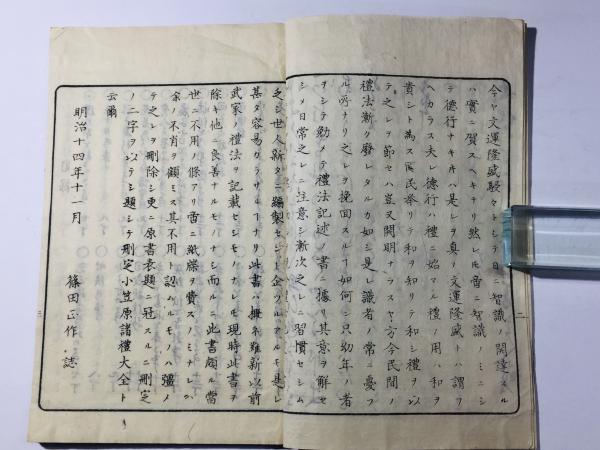 今ヤ文運隆盛駸々トシテ日ニ智識ノ開達スル
ハ實ニ賀スヘキナリ然レ𪜈啻ニ智識ノミニシ
テ德行ナキ𪜈ハ是レヲ真ノ文運隆盛トハ謂フ
ヘカラス夫レ德行ハ禮ニ始マル禮ノ用ハ和ヲ
貴シト為ス國民舉リテ和ヲ知リテ和シ禮ヲ以
テ之レヲ節セハ豈又開明ナラスヤ方今民間ノ
禮法漸ク廢レタルカ如シ是レ識者ノ常ニ憂フ
ル所ナリ之レヲ挽回スルヿ如何ン只幼年ノ者
ヲシテ勤メテ禮法記述ノ書ニ據リ其意ヲ解セ
シメ日常之レニ注意シ漸次之レニ習慣セシム
之シ世人新タニ編製セシト企ツルアルモ是レ
甚タ容易クラサルヿナリ此書ハ撫ネ難新以前
武家ノ禮法ヲ記載セシモノナレ𪜈現時此書ヲ
除キ他ニ良善ナルモノハナシ而ルニ此書頗ル當
世ニ不用ノ條アリ啻ニ紙牒ヲ費スノミナレハ
余ノ不肖ヲ顧ミス其不用ト認ハルモノハ彊メ
テ之レヲ刪除シ更ニ原書表題ニ冠スルニ刪定
ノ二字ヲ以テシ題シテ刪定小笠原諸禮大全ト
云爾
明治十四年十一月
篠田正作誌
二
二